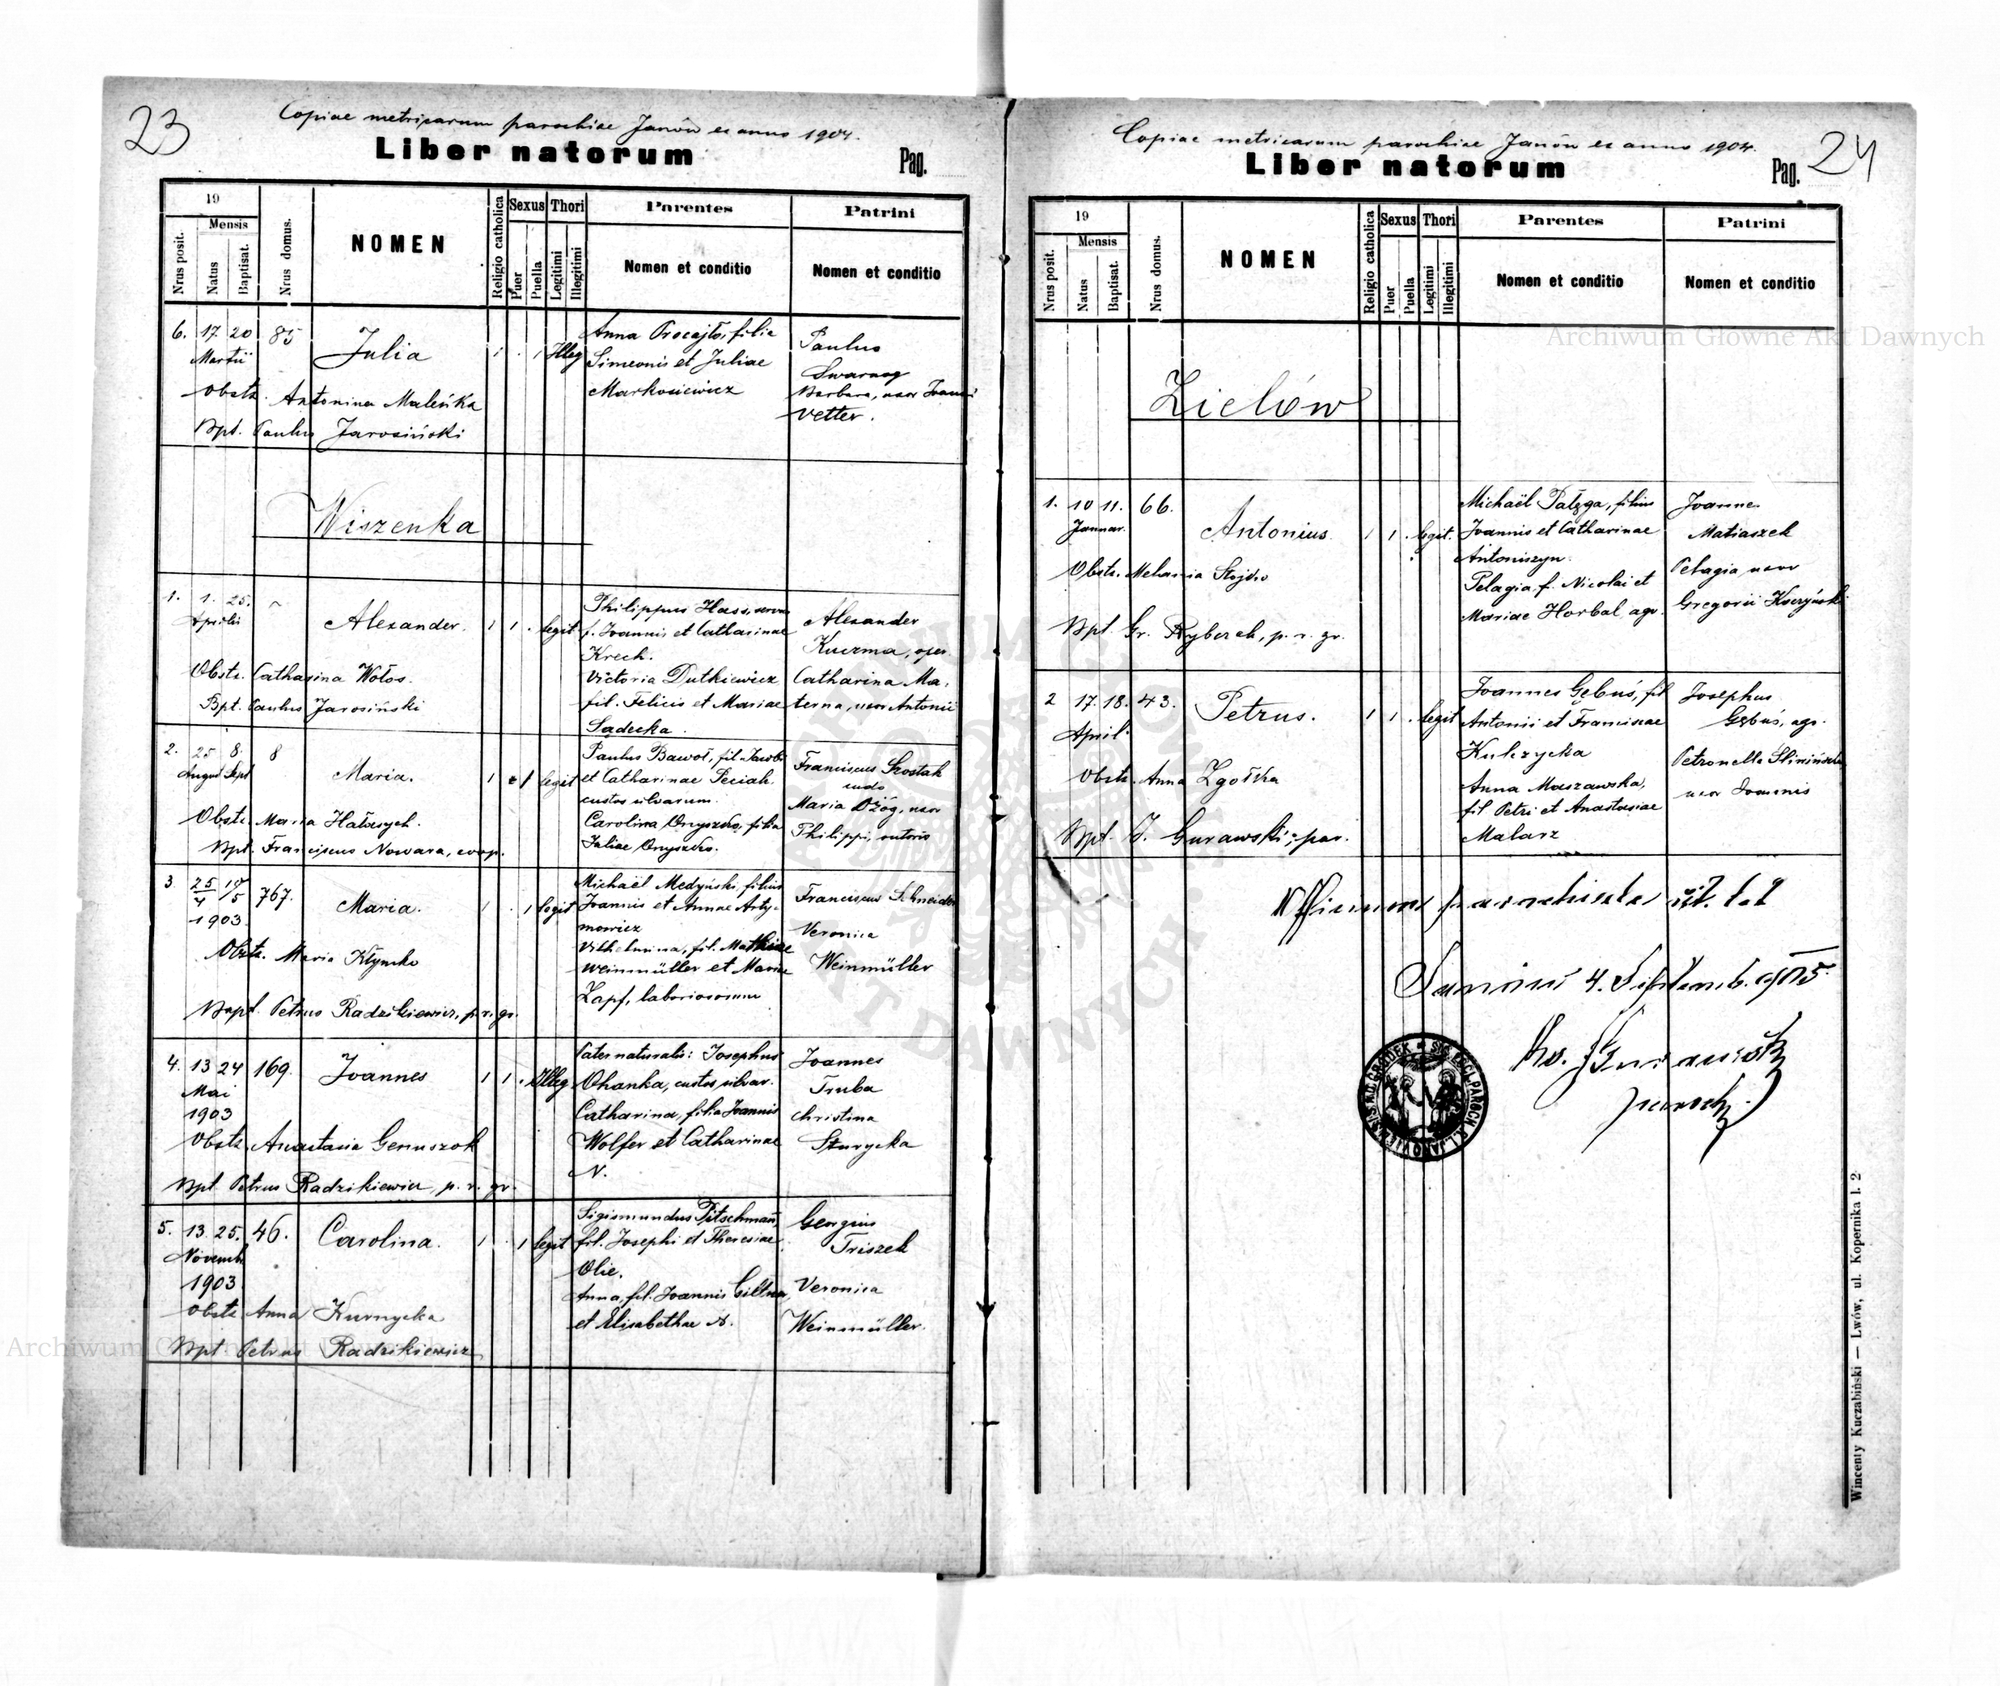 23
Copiae metricarum parochiae Janów ex anno 1904.
Liber natorum
Pag.
19
Mensis
Nrus posit.
Natus
Baptisat.
Nrus domus.
NOMEN
Religio catholica
Sexus
Puer
Puella
Thori
Legitimi
Illegitimi
Parentes
Nomen et conditio
Patrini
Nomen et conditio
6. 17 20 85 Julia 1 . 1 Illeg
Martii
Obstr. Antonina Maleńka
Bpt. Paulus Jarosiński
Anna Procajło, filia
Simeonis et Juliae
Markosiewicz
Paulus
Swarnog
Barbara, uxor Joanni
Vetter.
Wiszenka
1. 1. 25. ~ Alexander. 1 1 . legit
Aprilis
Obstr. Catharina Wołos.
Bpt. Paulus Jarosiński
Philippus Hass, servus
f. Joannis et Catharinae
Krech.
Victoria Dutkiewicz
fil. Felicis et Mariae
Sądecka.
Alexander
Kuczma, oper.
Catharina Ma,
terna, uxor Antonii
2. 25 8. 8 Maria. 1 . 1 legit
August Sept
Obstr. Maria Hałasych.
Bpt. Franciscus Nowara, coop.
Paulus Bawoł, fil. Jacobi
et Catharinae Peciak.
custos silvarum.
Carolina Onyszko, filia
Juliae Onyszko.
Franciscus Szostak
Maria Dżóg, uxor
Philippi, sutoris
3 25/4 10/5 767. Maria. 1 . 1 legit
1903
Obstr. Maria Kłymko
Bapt. Petrus Radzikiewicz, p. r. gr.
Michaël Medyński, filius
Joannis et Annae Arty-
mowicz
Vilhelmina, fil. Mathiae
Weinmüller et Mariae
Zapf, laboriosorum
Franciscus Schneider
Veronica
Weinmüller
4. 13 24 169. Joannes 1 1 . Illeg
Mai
1903
Obstr. Anastasia Genuszok
Bpt Petrus Radzikiewicz, p. r. gr.
Pater naturalis: Josephus
Ohanka, custos silvar.
Catharina, filia Joannis
Wolfer et Catharinae
N.
Joannes
Truba
Christina
Sturycka
5. 13. 25. 46. Carolina. 1 . 1 legit
Novemb
1903
Obstr Anna Kurnycka
Bpt Petrus Radzikiewicz
Sigismundus Pitschmann,
fil. Josephi et Theresiae
Olie.
Anna, fil. Joannis
et Elisabethae N.
Georgius
Triszek
Veronica
Weinmüller.
24
Copiae metricarum parochiae Janów ex anno 1904.
Liber natorum
Pag.
19
Mensis
Nrus posit.
Natus
Baptisat.
Nrus domus.
NOMEN
Religio catholica
Sexus
Puer
Puella
Thori
Legitimi
Illegitimi
Parentes
Nomen et conditio
Patrini
Nomen et conditio
Zielów
1. 10 11. 66. Antonius. 1 1 . legit.
Januar.
Obstr. Melania Stojko
Bpt. Gr. Ryberek, p. r. gr.
Michaël Pałzga, filius
Joannis et Catharinae
Antoniszyn.
Pelagia f. Nicolai et
Mariae Horbal agr.
Joannes
Matiaszek
Pelagia uxor
Gregorii
2 17. 18. 43. Petrus. 1 1 . legit
April.
Obstr. Anna Zgołka
Bpt. J. Gurawski, par.
Joannes Gębuś, fil
Antonii et Franciscae
Kulczycka
Anna Maszawska,
fil Petri et Anastasiae
Malarz
Josephus
Gębuś, agr.
Petronella
uxor Joannis
Officium parochiale rit. lat
Janów 4. Septemb. 1905.
SIG. ECCL. PAROCH. R. L. JANOVIENSIS AD GRÓDEK
Wincenty Kuczabiński — Lwów, ul. Kopernika l. 2
Archiwum Główne Akt Dawnych
Archiwum Główne Akt Dawnych
ARCHIWUM GŁÓWNE AKT DAWNYCH